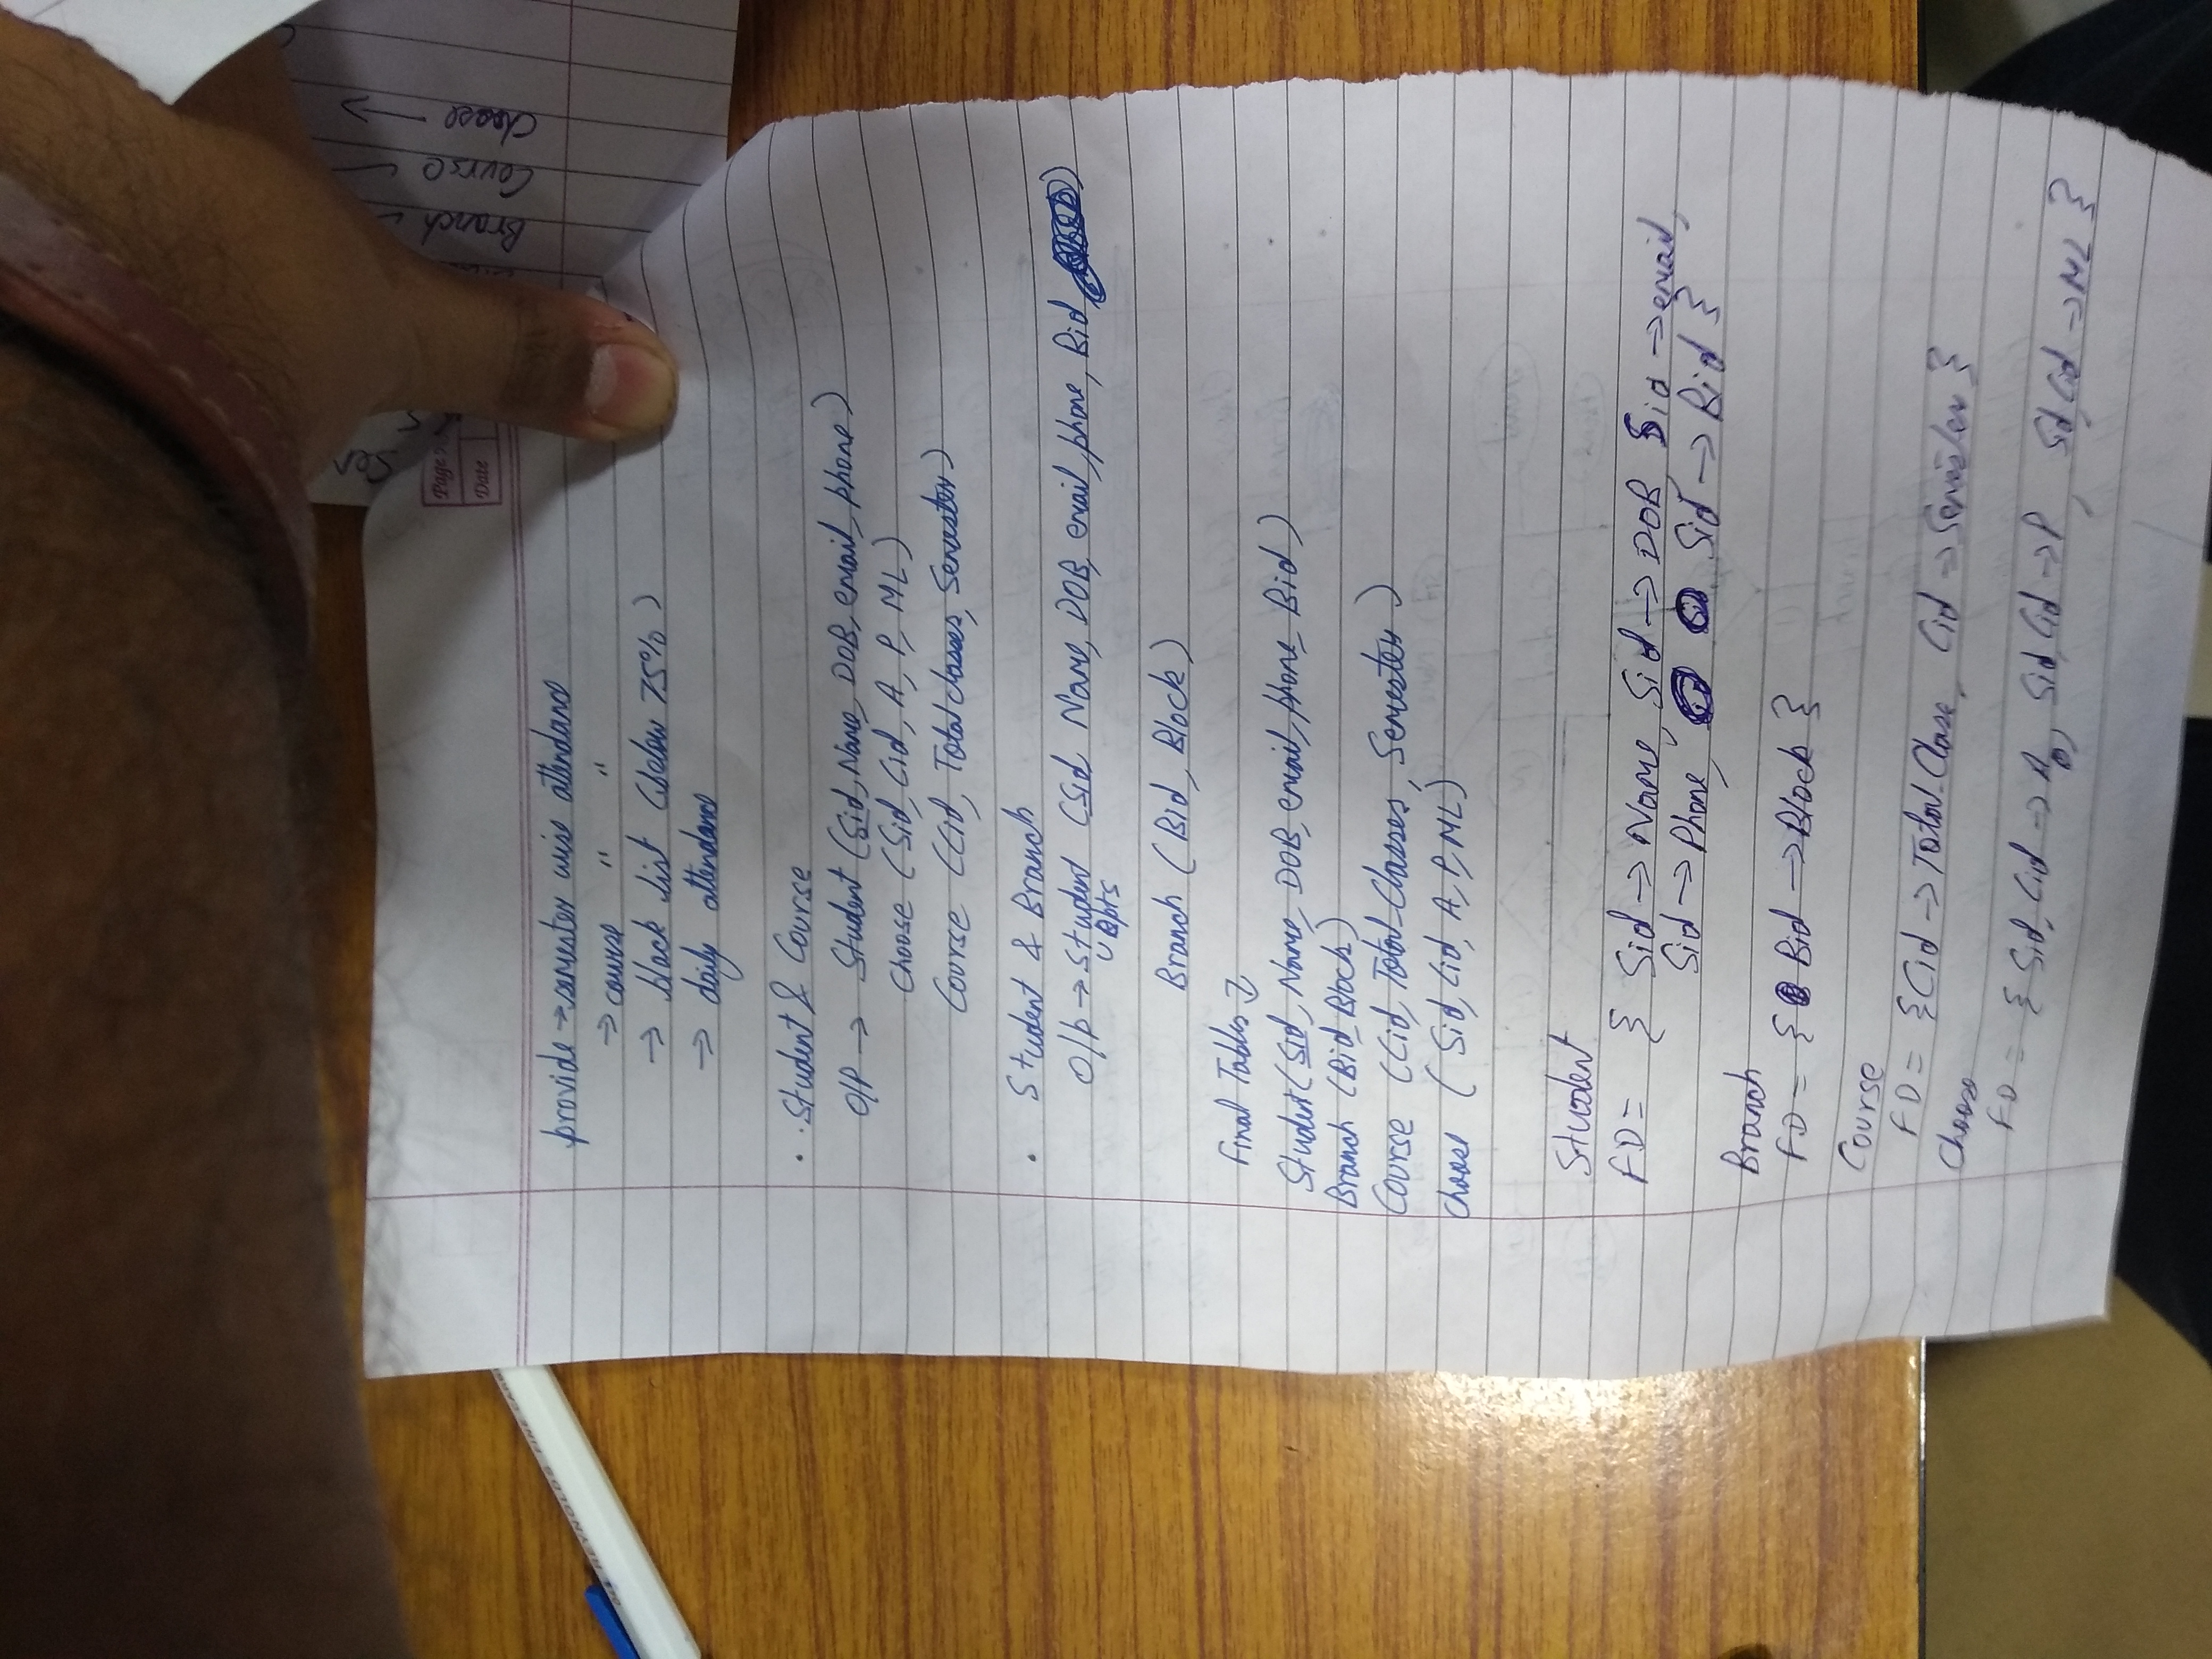 provide → semester wise attendance
→ course " "
→ black list (below 75%)
→ daily attendance
• Student & Course
O/P → Student (Sid, Name, DOB, email, phone)
Choose (Sid, Cid, A, P, ML)
Course (Cid, Total classes, Semester)
• Student & Branch
O/P → Student (Sid, Name, DOB, email, phone, Bid)
opts
Branch (Bid, Block)
Final Tables ↓
Student (Sid, Name, DOB, email, phone, Bid)
Branch (Bid, Block)
Course (Cid, Total Classes, Semester)
Choose (Sid, Cid, A, P, ML)
Student
FD = { Sid → Name, Sid → DOB Sid → email,
Sid → Phone, Sid → Bid }
Branch
FD = { Bid → Block }
Course
FD = { Cid → Total Class, Cid → Semister }
Choose
FD = { Sid, Cid → A, Sid, Cid → P, Sid, Cid → ML }
Page
Date
Branch
Course
Choose
REYNOLDS